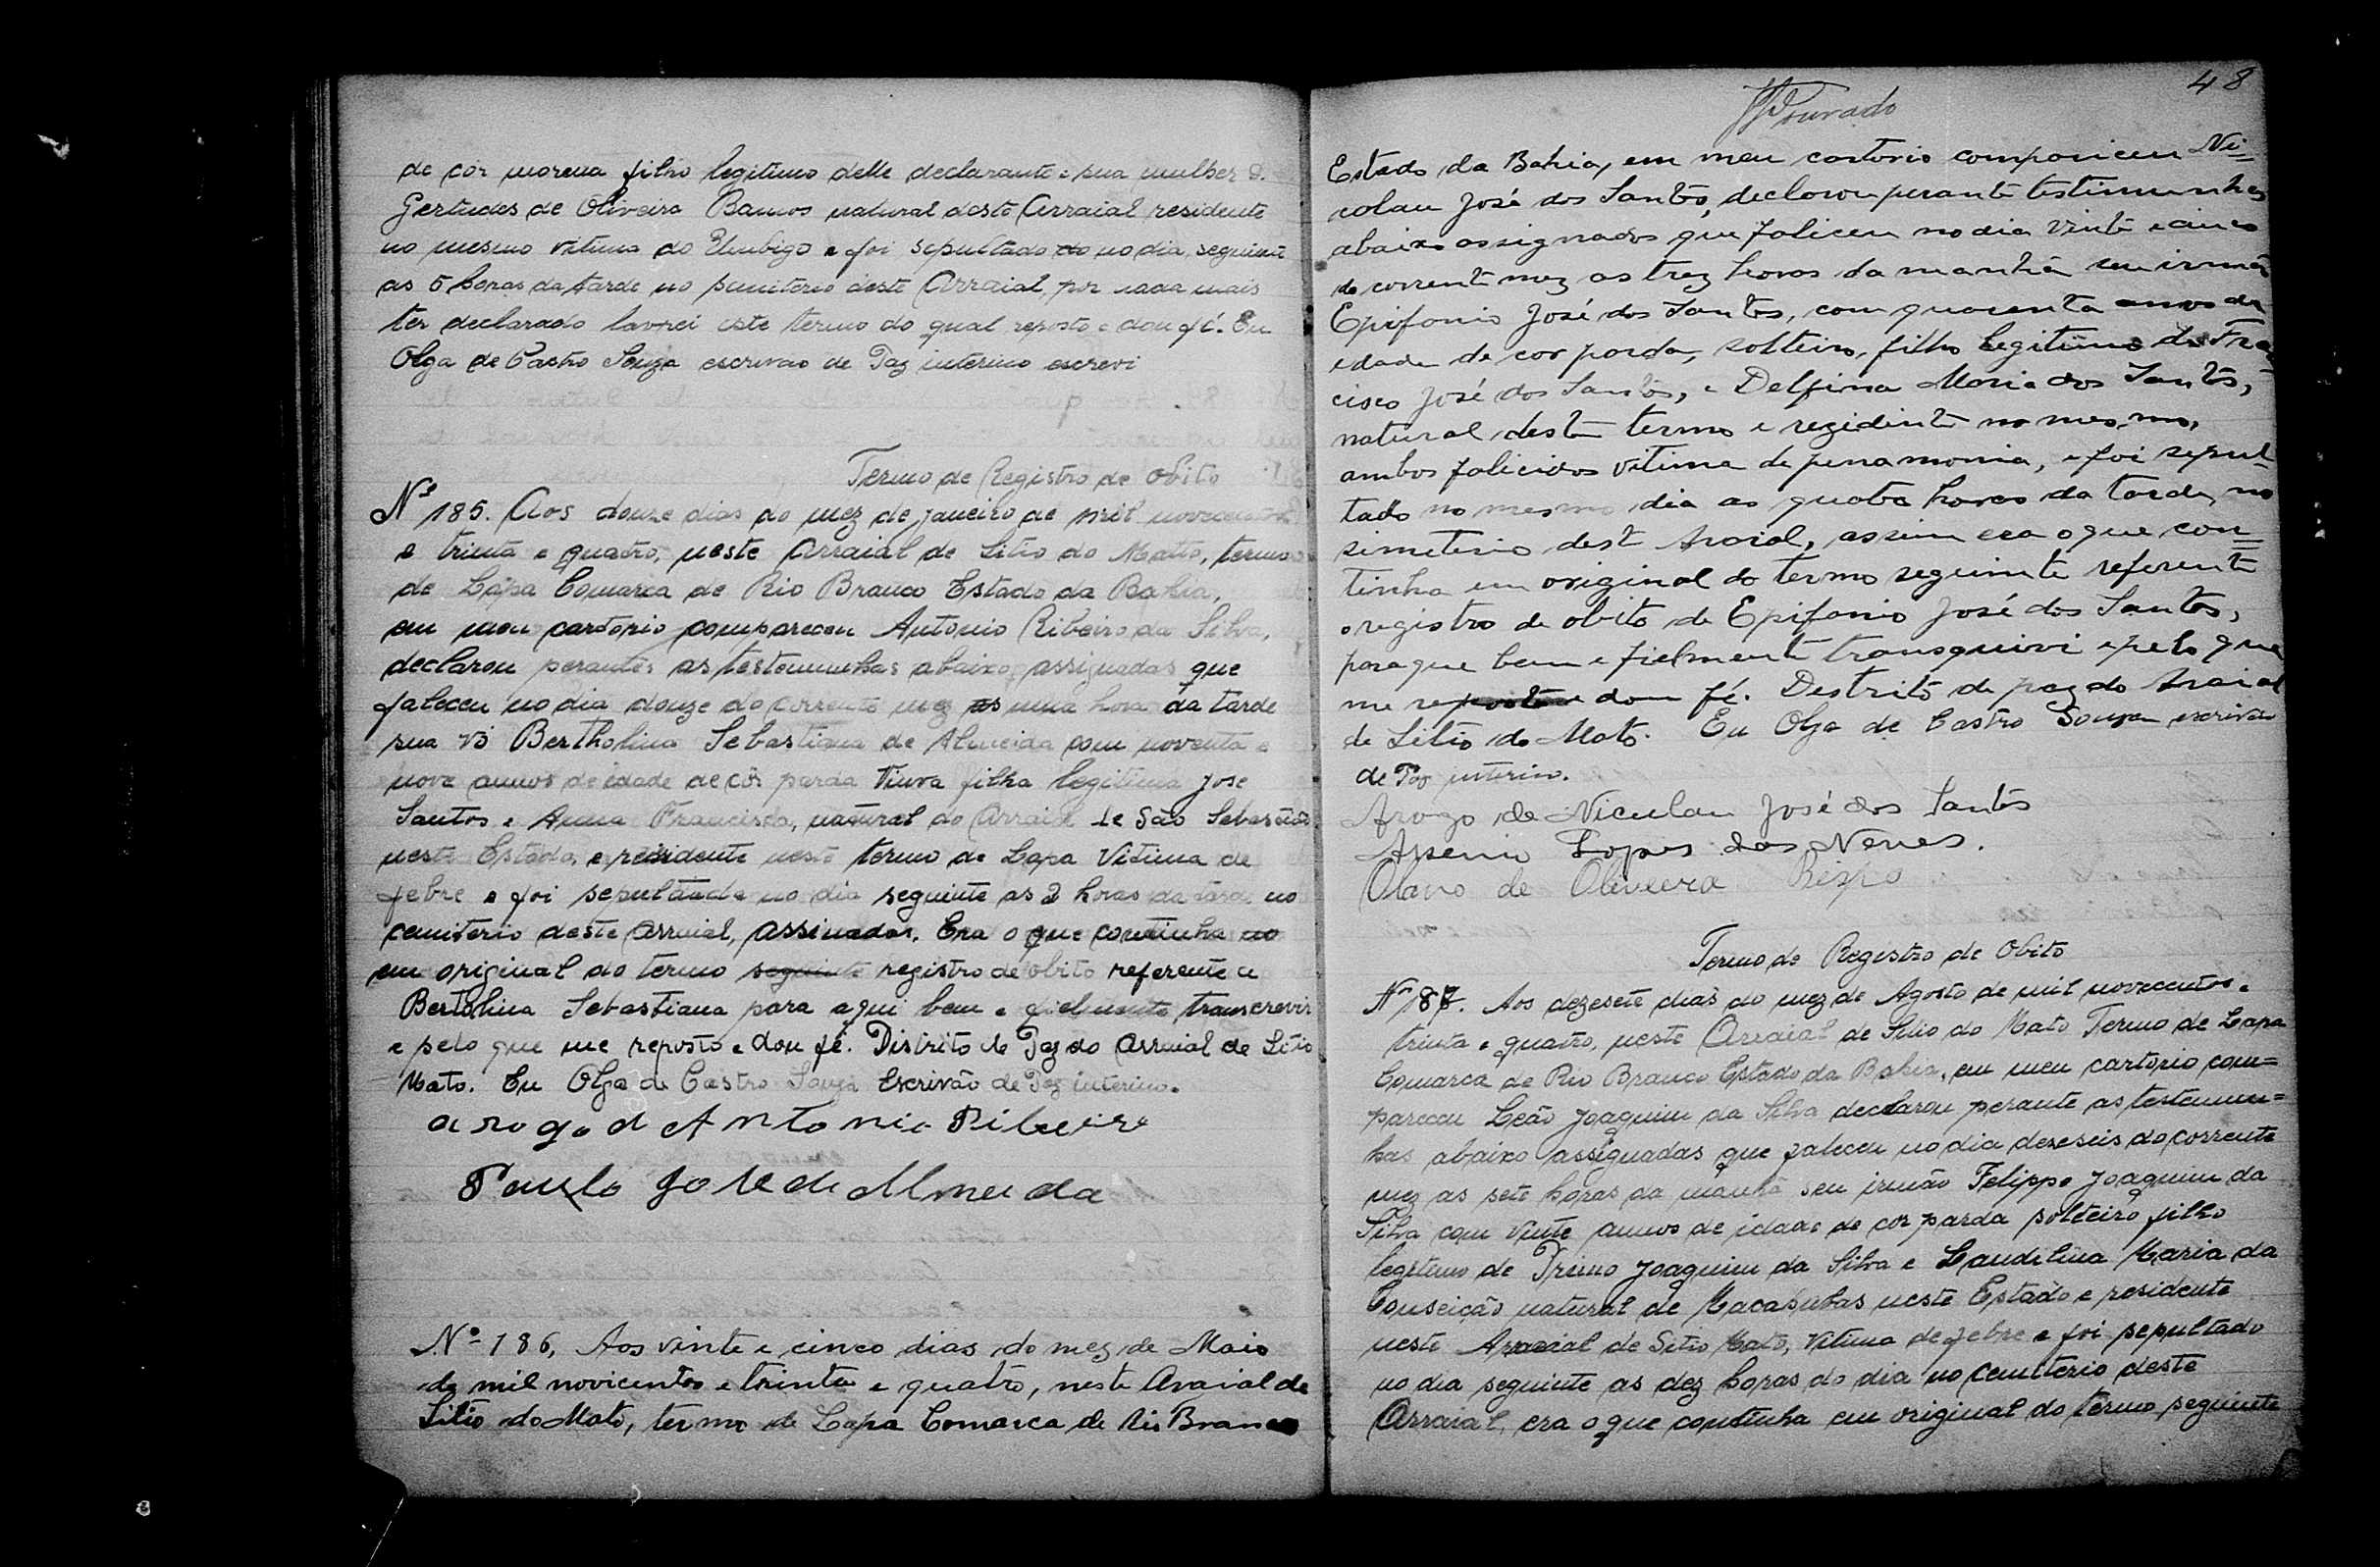 de côr morena filho legitimo delle declarante e sua mulher D.
Gertudes de Oliveira Barros natural deste Arraial residente
no mesmo vitima do Umbigo e foi sepultado no dia seguinte
as 5 horas da tarde no semiterio deste Arraial, por nada mais
ter declarado lavrei este termo do qual reposto e dou fé. Eu
Olga de Castro Souza escrivão de Paz interino escrevi
Termo de Registro de obito
Nº 185. Aos douze dias do mez de janeiro de mil novecentos
e trinta e quatro, neste Arraial de Sitio do Matto, termo
de Lapa Comarca de Rio Branco Estado da Bahia,
em meu cartorio compareceu Antonio Ribeiro da Silva,
declarou perantes as testemunhas abaixo assignadas que
faleceu no dia douze do corrente mez as uma hora da tarde
sua vó Bertholina Sebastiana de Almeida com noventa e
nove annos de idade de côr parda viuva filha legitima José
Santos e Anna Francisca, natural do Arraial de São Sebastião
neste Estado, e residente neste termo de Lapa Vitima de
febre e foi sepultada no dia seguinte as 2 horas da tarde no
cemiterio deste Arraial, assinadas. Era o que continha no
em original do termo seguinte registro de obito referente a
Bertolina Sebastiana para aqui bem e fielmente transcrevir
e pelo que me reposto e dou fé. Distrito de Paz do Arraial de Sitio
Mato. Eu Olga de Castro Souza Escrivão de Paz interino.
a rogo d Antonio Ribeiro
Paulo José de Almeida
Nº 186, Aos vinte e cinco dias do mez de Maio
de mil novicentos e trinta e quatro, neste Araial de
Sitio do Mato, termo de Lapa Comarca de Rio Branco
48
Dourado
Estado da Bahia, em meu cartorio compariceu Ni=
colau José dos Santos, declarou perante testimunhas
abaixo assignados que faliceu no dia vinte e cinco
do corrente mez as trez horas da manhã seu irmão
Epifanio José dos Santos, com quarenta annos de
edade de cor parda, solteiro, filho legitimo de Fran
cisco José dos Santos, e Delfina Maria dos Santos,
natural deste termo e rezidente no mesmo,
ambos falicidos vitima de penamonia, e foi sepul=
tado no mesmo dia as quatro horas da tarde, no
simeterio dest Araial, assim era o que con=
tinha em original do termo seguinte referente
o registro de obito de Epifanio José dos Santos,
para que bem e fielmente transquivi e pelo que
me reposto e dou fé. Destrito de paz do Araial
de Sitio do Mato. Eu Olga de Castro Souza escrivão
de Paz interin.
Arogo de Niculau José dos Santos
Assenio Lopes das Neves.
Olavo de Oliveira Bispo
Termo de Registro de Obito
Nº 187. Aos dezesete dias do mez de Agosto de mil novecentos e
trinta e quatro, neste Arraial de Sitio do Mato Termo de Lapa
Comarca de Rio Branco Estado da Bahia, em meu cartorio com=
pareceu Leão Joaquim da Silva declarou perante as testemun=
has abaixo assignadas que faleceu no dia deseseis do corrente
mez as sete horas da manhã seu irmão Felippe Joaquim da
Silva com vinte annos de idade de cor parda solteiro filho
legitimo de Primo Joaquim da Silva e Laudelina Maria da
Conseição natural de Macahubas neste Estado e residente
neste Arraial de Sitio Mato, Vitima de febre e foi sepultado
no dia seguinte as dez horas do dia no cemiterio deste
Arraial, era o que continha em original do termo seguinte